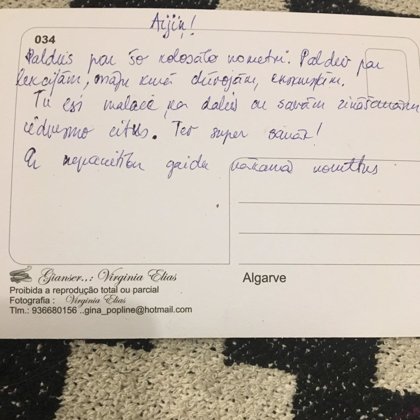 034
Aijiņ!
Paldies par šo kolosālo nometni. Paldies par
lekcijām, māju kurā dzīvojām,
Tu esi malacē ka dalies ar savām zināšanām
iedvesmo citus. Tev super sanāk!
Ar nepacietību gaidu nākamā nomettus
Gianser..: Virginia Elias
Proibida a reprodução total ou parcial
Fotografia : Virginia Elias
Tlm.: 936680156 ..gina_popline@hotmail.com
Algarve